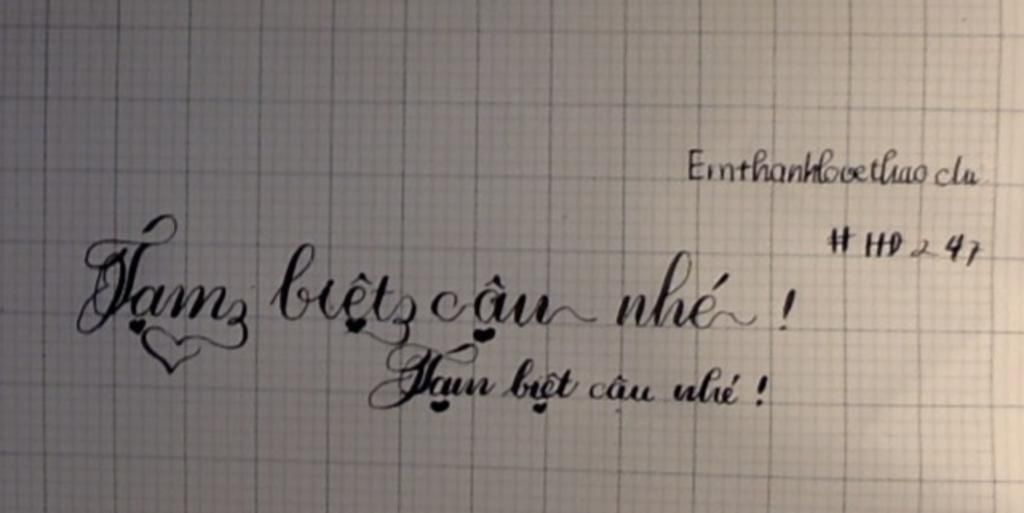 Emthanhlovethao clu
# HD 247
Tạm biệt cậu nhé !
Tạm biệt cậu nhé !